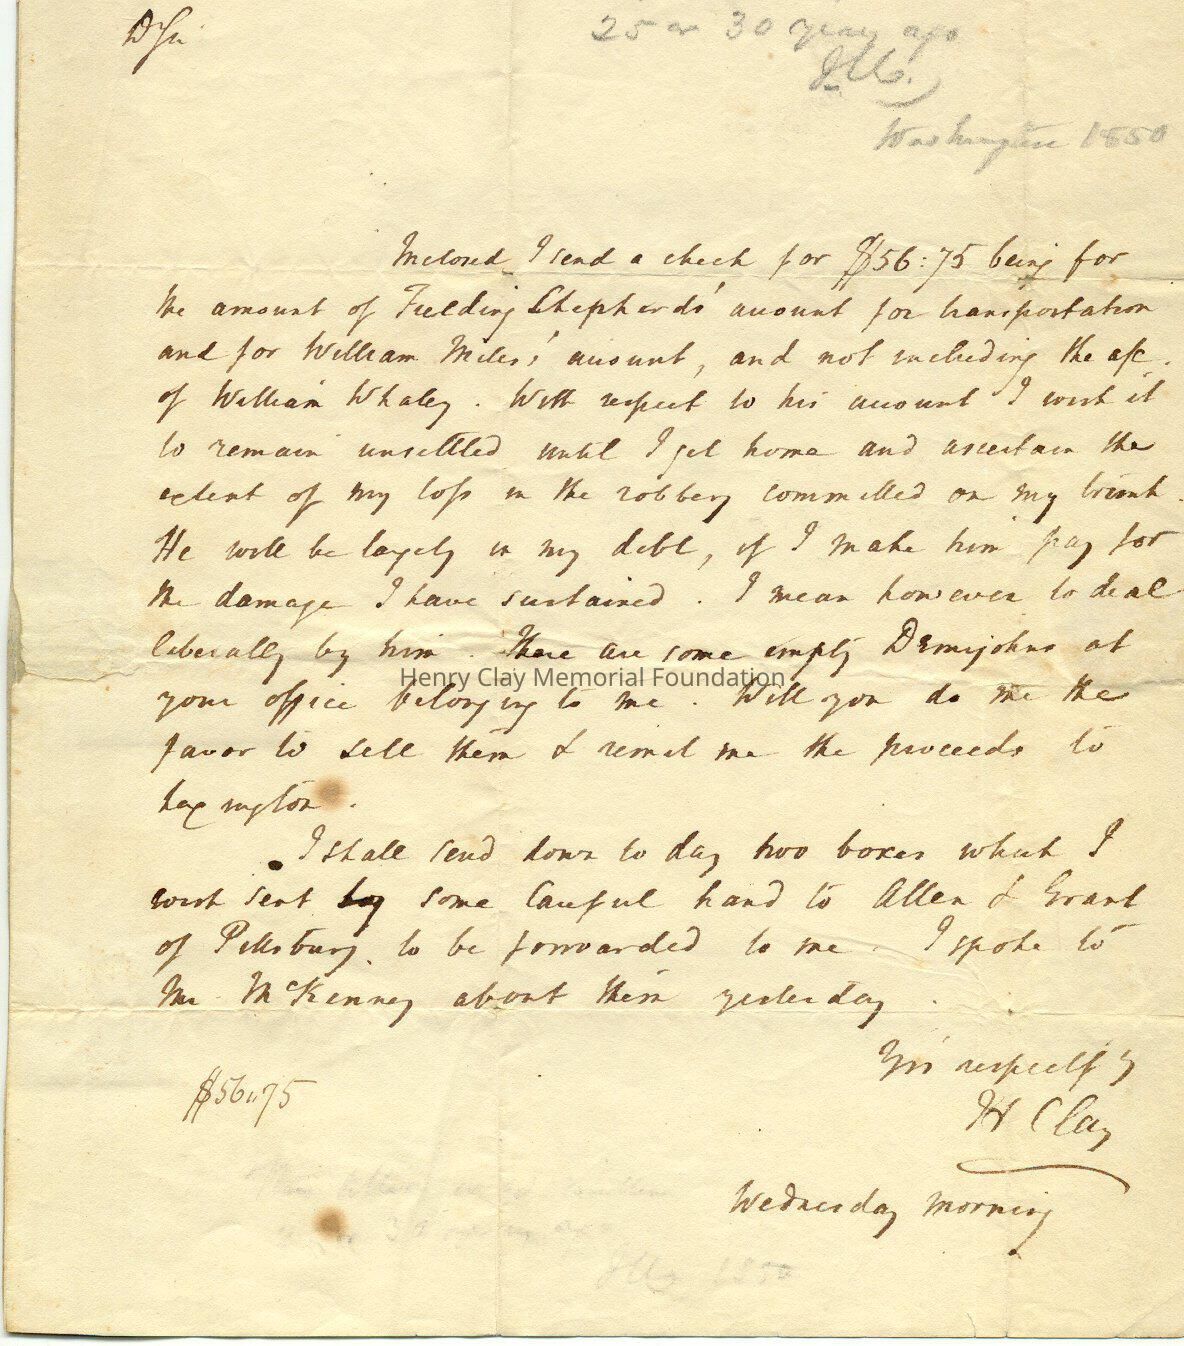 D Sir
25 or 30 years ago
Washington 1850
Inclosed I send a check for $56:75 being for
the amount of Fielding Shepherds' account for transportation
and for William Miles' account, and not including the a/c.
of William Whaley. With respect to his account I wish it
to remain unsettled until I get home and ascertain the
extent of my loss in the robbery committed on my trunk.
He will be largely in my debt, if I make him pay for
the damage I have sustained. I mean however to deal
liberally by him. There are some empty Demijohns at
Henry Clay Memorial Foundation
your office belonging to me. Will you do me the
favor to sell them & remit me the proceeds to
Lexington.
I shall send down to day two boxes which I
wish sent by some careful hand to Allen & Grant
of Pittsburg, to be forwarded to me. I spoke to
Mr. McKenney about them yesterday.
Yrs respectfy
H Clay
$56"75
Wednesday morning
1850